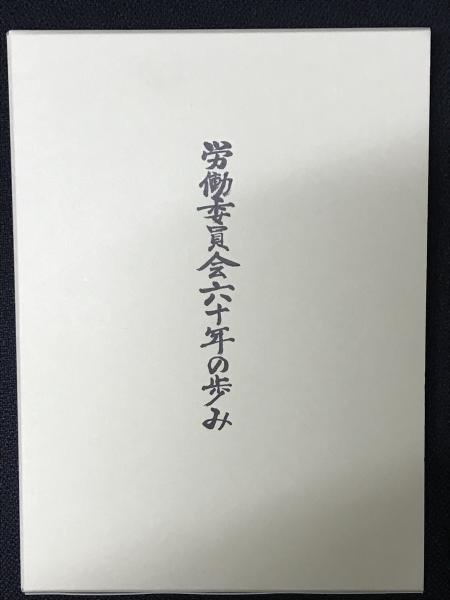 労働委員会六十年の歩み